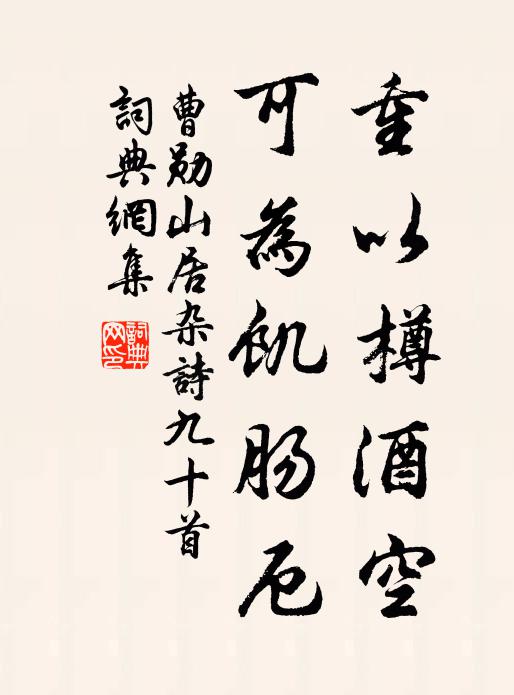 重以樽酒空
可為飢肠厄
曹勋山居杂詩九十首
詞典網集
詞典网印